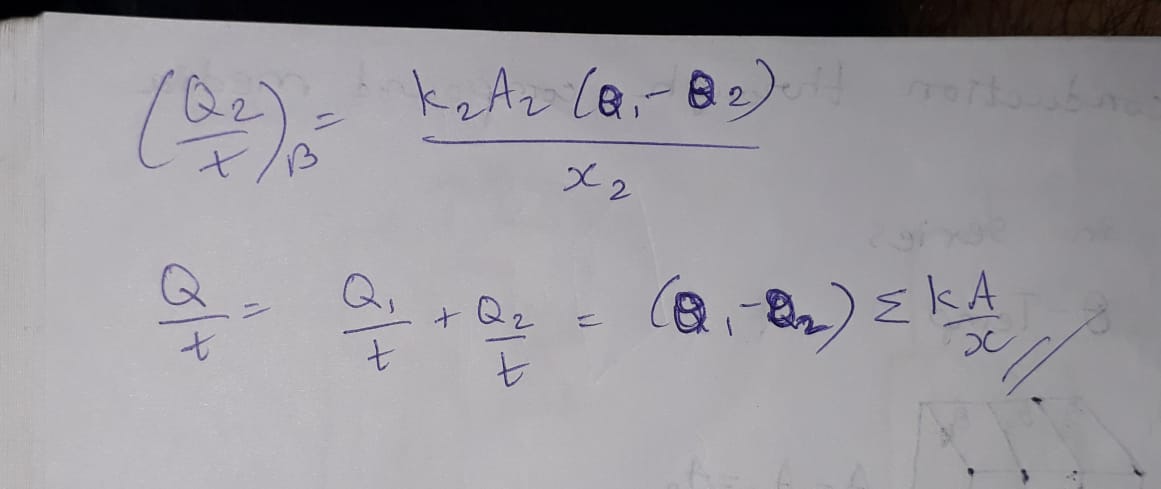 (Q₂/t)_B = k₂A₂(θ₁-θ₂)/x₂
Q/t = Q₁/t + Q₂/t = (θ₁-θ₂) Σ kA/x //